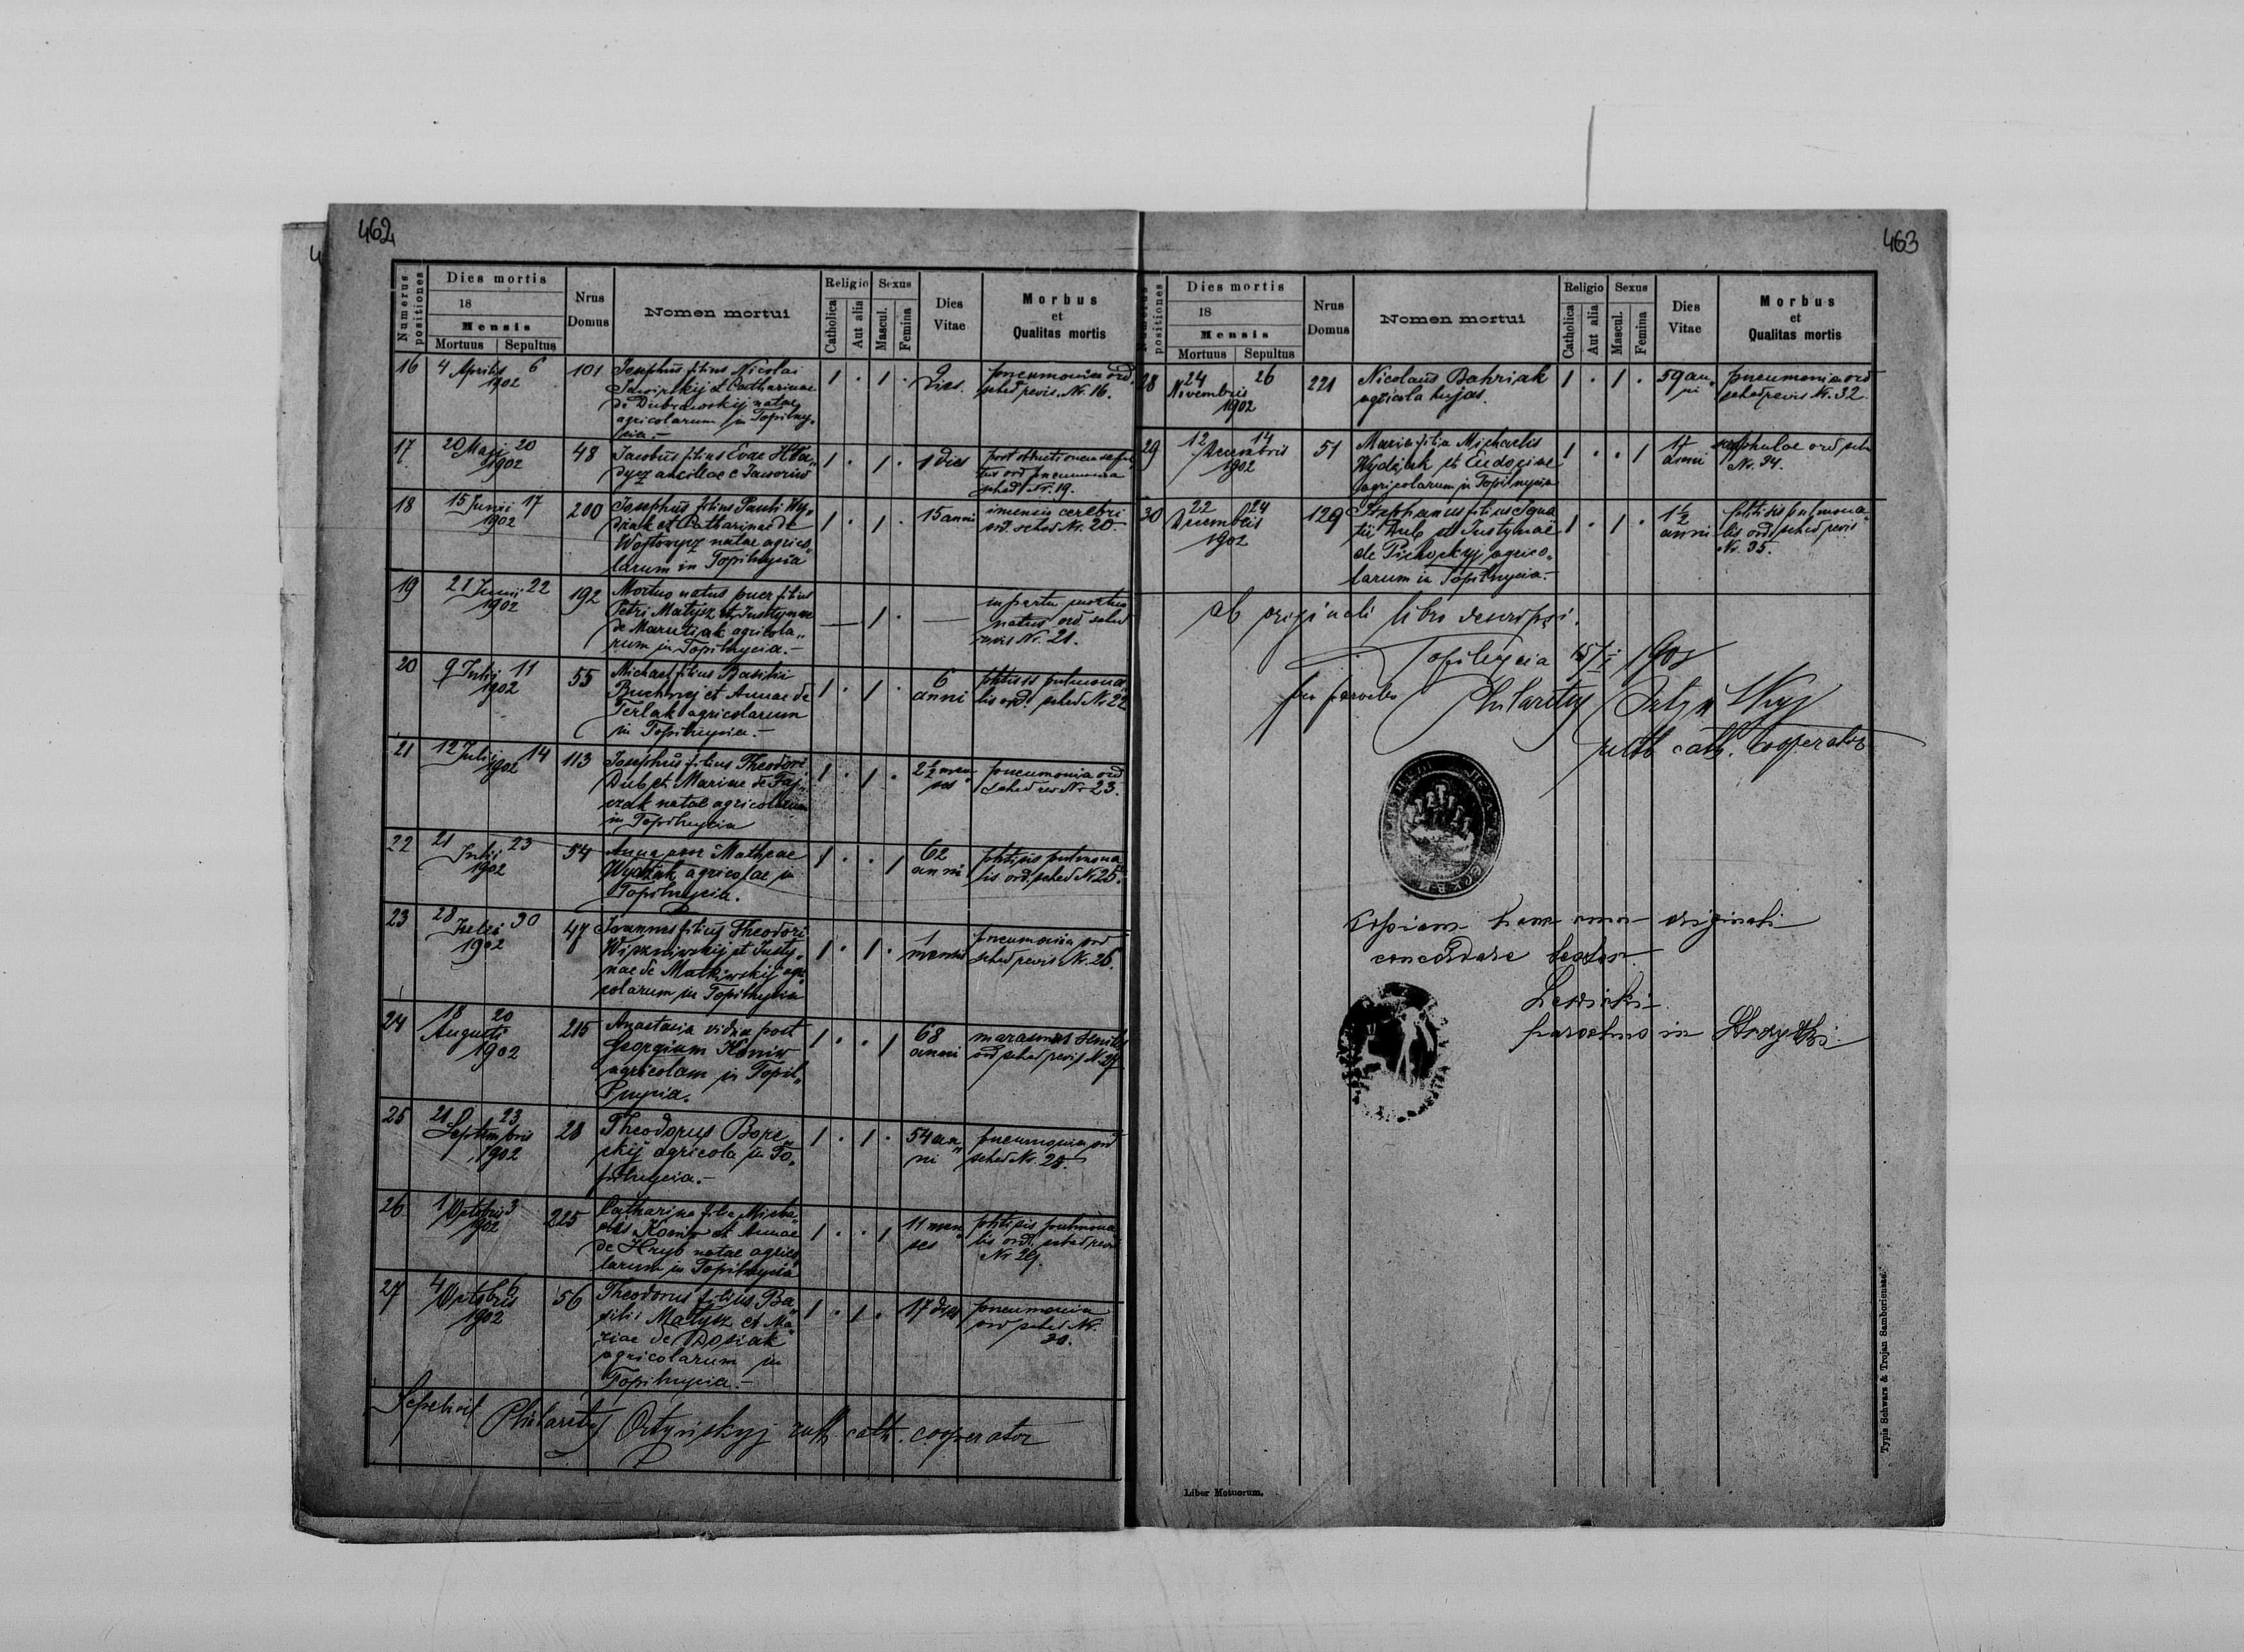 462
Numerus positiones
Dies mortis
18
Mensis
Mortuus Sepultus
Nrus Domus
Nomen mortui
Religio
Catholica
Aut alia
Sexus
Mascul.
Femina
Dies Vitae
Morbus
et
Qualitas mortis
16 4 Aprilis 6 101 Josephus filius Nicolai 1 . 1 . 9 pneumonia ord.
1902 et Catharinae dies sched revis. Nr. 16.
de Dubrawskij natae
agricolarum in Topilny„
cia.-
17 20 Maji 20 48 Jacobus filius Evae Hła„ 1 . 1 . 1 dies post
1902 dycz ancillae e Jaworiw ord pneumonia
sched Nr. 19.
18 15 Junii 17 200 Josephus filius Pauli Wy„ 1 . 1 . 15 anni cerebri
1902 dżak et Catharinae de ord. sched Nr. 20.
Wojtowycz natae agrico„
larum in Topilnycia
19 21 Junii 22 192 Mortuo natus puer filius — 1 . — in partu mortuo
1902 Petri Matycz et Justynae natus ord sched
de Marutiak agricola„ revis Nr. 21.
rum in Topilnycia.-
20 9 Julii 11 55 Michael filius Basilii 1 . 1 . 6 phtisis pulmona„
1902 et Annae de anni lis ord. sched Nr 22
Terlak agricolarum
in Topilnycia.-
21 12 Julii 14 113 Josephus filius Theodori 1 . 1 . 2½ men„ pneumonia ord
1902 Dub et Mariae de Faj„ ses sched rev Nr 23.
czak natae agricolarum
in Topilnycia
22 21 Julii 23 54 Anna uxor Matheae 1 . . 1 62 phtisis pulmona„
1902 Wydżak agricolae in anni lis ord. sched Nr 25.
Topilnycia.
23 28 Julii 30 47 Joannes filius Theodori 1 . 1 . 1 pneumonia ord
1902 et Justy„ mensis sched revis Nr. 26.
nae de Matkiwskij agri„
colarum in Topilnycia
24 18 20 215 Anastasia vidua post 1 . . 1 68 marasmus senilis
Augusti Georgium Koniw anni ord sched revis Nr 27
1902 agricolam in Topil„
nycia.
25 21 23 28 Theodorus 1 . 1 . 54 an„ pneumonia ord
Septembris agricola in To„ ni sched Nr. 28.
1902 pilnycia.-
26 1 Octobris 3 225 Catharina filia Micha„ 1 . . 1 11 men„ phtisis pulmona„
1902 elis Koniw et Annae ses lis ord. sched revis
de Hryb natae agrico„ Nr 29.
larum in Topilnycia
27 4 Octobris 6 56 Theodorus filius Ba„ 1 . 1 . 17 dies pneumonia
1902 silii Matycz et Ma„ ord sched Nr.
riae de Dosiak 30.
agricolarum in
Topilnycia.-
Sepelivit Philaretus Ortyńskyj ruth. cath. cooperator
463
Numerus positiones
Dies mortis
18
Mensis
Mortuus Sepultus
Nrus Domus
Nomen mortui
Religio
Catholica
Aut alia
Sexus
Mascul.
Femina
Dies Vitae
Morbus
et
Qualitas mortis
28 24 26 221 Nicolaus Bahriak 1 . 1 . 59 an„ pneumonia ord
Novembris agricola hujas. ni sched revis Nr. 32.
1902
29 12 14 51 Maria filia Michaelis 1 . . 1 ord sch
Decembris Wydżak et Eudociae anni Nr. 34.
1902 agricolarum in Topilnycia
30 22 24 129 Stephanus filius Igna„ 1 . 1 . 1½ phtisis pulmona„
Decembris tii Dub et Justynae anni lis ord sched revis
1902 de agrico„ Nr. 35.
larum in Topilnycia.-
Ab originali libro descripsi.
Topilnycia
pro parocho Philaretus Ortyńskyj
ruth cath. cooperator
Copiam hanc cum originali
concordare testor.
parochus in
Liber Motuorum.
Typis Schwarz & Trojan Samboriensae.